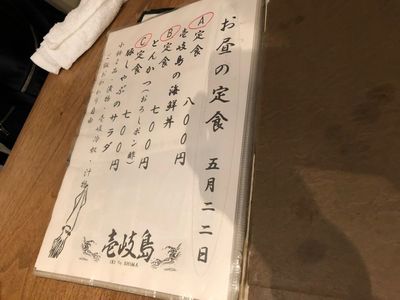 お昼の定食 五月二二日
Ⓐ定食
壱岐島の海鮮丼 八〇〇円
Ⓑ定食
とんかつ(おろしポン酢) 七〇〇円
Ⓒ定食
豚しゃぶのサラダ 七〇〇円
壱岐島